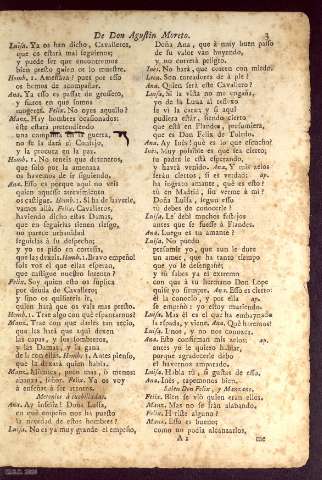 De Don Agustin Moreto. 3
Luisa. Ya os han dicho, Cavalleros,
que os estará mal seguirnos;
y puede ser que encontremos
bien presto quien os lo muestre.
Homb. 1. Amenaza? pues por esso
os hemos de acompañar.
Ana. Ya esso es passar de grossero,
y
Felix. No oyes aquello?
Manz. Hay hombres ocasionados:
este estará pretendiendo
una en la guerra,
no se la dará el Consejo,
y la procura la paz.
Homb. 1. No teneis que deteneros,
que solo por la amenaza
os havemos de ir siguiendo.
Ana. Esso es porque aqui no veis
quien aquesse atrevimiento
os castigue. Homb. Si ha de haverle,
vamos allá. Felix. Cavalleros,
haviendo dicho estas Damas,
que en seguirlas tienen riesgo,
no parece urbanidad
seguirlas á su despecho;
y yo os pido en cortesia,
que las dexeis. Homb. 1. Bravo empeño!
sois vos el que ellas esperan,
que castigue nuestro intento?
Felix. Soy quien esto os suplica
por deuda de Cavallero;
y sino os quisiereis ir,
quien hará que os vais mas presto.
Homb. 1. Trae algo con que espantarnos?
Manz. Trae con que darles tan recio,
que les hará que aqui dexen
las capas, y los sombreros,
y las Damas, y la gana
de ir con ellas. Homb. 1. Antes pienso,
que la dexará quien habla.
Manz. pues, ó menos:
abanza, señor. Felix. Ya os voy
á enseñar á ser atentos.
Metenlos á cuchilladas.
Ana. Ay infeliz! Doña Luisa,
en qué empeño nos ha puesto
la necedad de estos hombres?
Luisa. No es ya muy grande el empeño,
Doña Ana, que á muy buen passo
de su valor van huyendo,
y no correrá peligro.
Inés. No hará, que cascan con miedo.
Leon. Son toreadores de á pie?
Ana. Quien será este Cavallero?
Luisa. Si la vista no me engaña,
yo de la Luna al reflexo
le vi la cara; y si aquí
pudiera estár, siendo cierto
que está en Flandes, presumiera,
que es Don Felix de Toledo.
Ana. Ay Inés! qué es lo que escucho?
Inés. Muy possible es que sea cierto;
tu padre le está esperando,
y havrá venido. Ana. Y mis zelos
serán ciertos, si es verdad: ap.
ha ingrato amante, qué es esto?
tú en Madrid, sin verme á mí?
Doña Luisa, segun esso
tú debes de conocerle?
Luisa. Le debí muchos festejos
antes que se fuesse á Flandes.
Ana. Luego es tu amante?
Luisa. No puedo
presumir yo, que aun le dure
un amor, que ha tanto tiempo
que yo le desengañé;
y tú sabes ya el extremo
con que á tu hermano Don Lope
quise yo siempre. Ana. Esso es cierto:
él la conoció, y por ella ap.
se encubrió: yo estoy muriendo.
Luisa. Mas él es el que ha embaynado
la espada, y viene. Ana. Qué haremos?
Luisa. Irnos, y no nos conozca.
Ana. Esto confirman mis zelos: ap.
antes yo le quiero hablar,
porque agradecerle debo
el havernos amparado.
Luisa. Habla tú, si gustas de esso.
Ana. Inés, tapemonos bien.
Salen Don Felix, y Manzano.
Felix. Bien se vió quien eran ellos.
Manz. Mas no se irán alabando.
Felix. Heriste alguno?
Manz. Esso es bueno:
como no podia alcanzarlos,
A 2 me